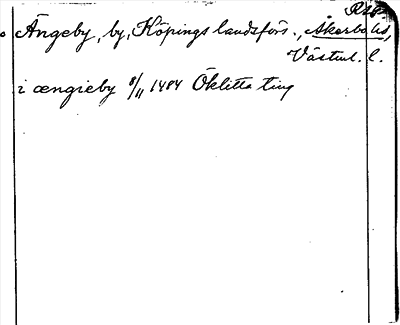 Ängeby, by, Köpings landsförs., Åkerbo hd,
Västml. l.
i ængieby 8/11 1484 Öklitta ting